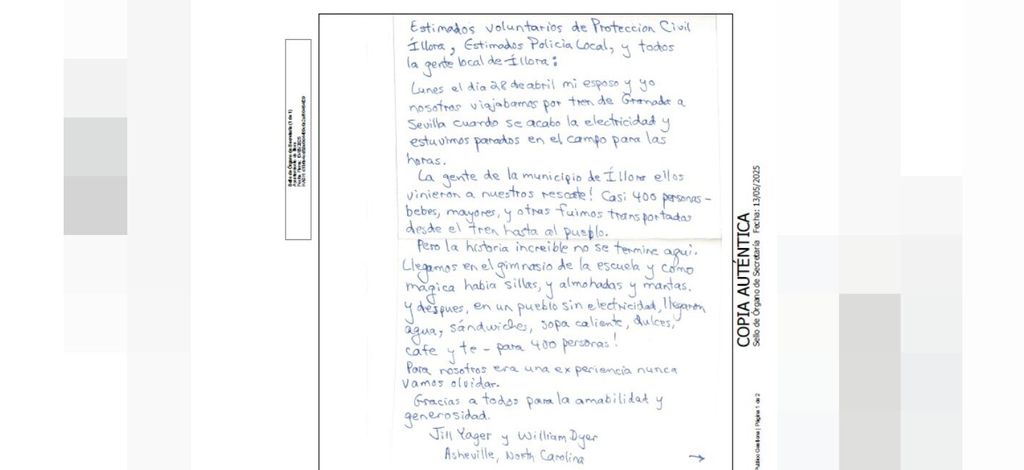 Estimados voluntarios de Protección Civil
Íllora, Estimados Policia Local, y todos
la gente local de Íllora:
Lunes el dia 28 de abril mi esposo y yo
nosotros viajabamos por tren de Granada a
Sevilla cuando se acabo la electricidad y
estuvimos parados en el campo para las
horas.
La gente de la municipio de Íllora ellos
vinieron a nuestros rescate! Casi 400 personas-
bebes, mayores, y otras fuimos transportados
desde el tren hasta al pueblo.
Pero la historia increible no se termine aqui.
Llegamos en el gimnasio de la escuela y como
magica habia sillas, y almohadas y mantas.
Y despues, en un pueblo sin electricidad, llegaron
agua, sándwiches, sopa caliente, dulces,
cafe y te - para 400 personas!
Para nosotros era una experiencia nunca
vamos olvidar.
Gracias a todos para la amabilidad y
generosidad.
Jill Yager y William Dyer
Asheville, North Carolina
COPIA AUTÉNTICA
Sello de Órgano de Secretaría Fecha: 13/05/2025